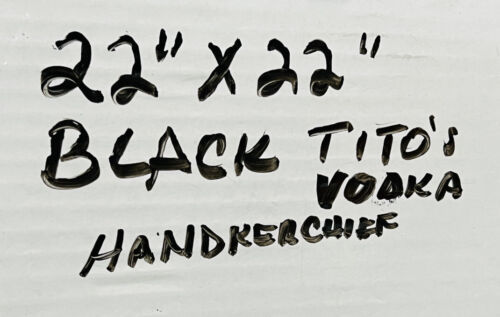 22" X 22"
BLACK TITO's
VODKA
HANDKERCHIEF